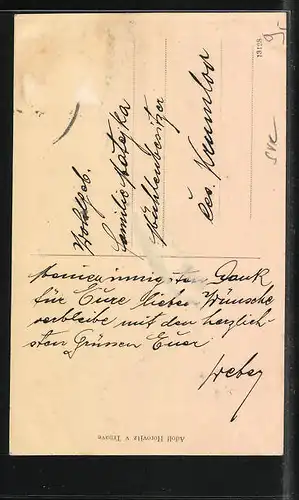 Wohlgeb.
Familie Matejka
Mühlenbesitzer
Böhm. Krumlov
Meinen innigsten Dank
für Eure lieben Wünsche
verbleibe mit den herzlich-
sten Grüssen Euer
Weber
Adolf Horovitz v Trnave
13198
9.-